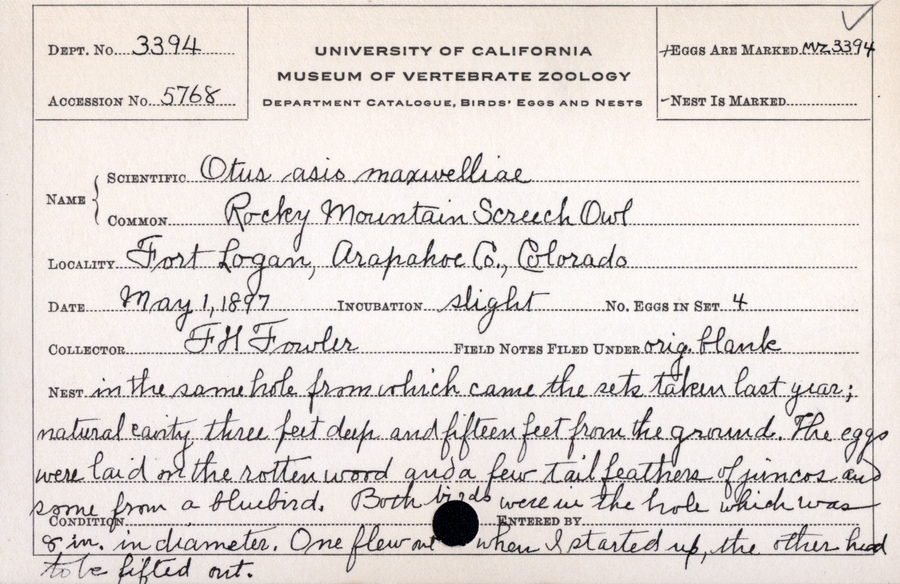 DEPT. No. 3394
ACCESSION No. 5768
UNIVERSITY OF CALIFORNIA
MUSEUM OF VERTEBRATE ZOOLOGY
DEPARTMENT CATALOGUE, BIRDS' EGGS AND NESTS
EGGS ARE MARKED MVZ 3394
NEST IS MARKED
NAME
SCIENTIFIC Otus asio maxwelliae
COMMON Rocky Mountain Screech Owl
LOCALITY Fort Logan, Arapahoe Co., Colorado
DATE May 1, 1897 INCUBATION slight No. EGGS IN SET 4
COLLECTOR F H Fowler FIELD NOTES FILED UNDER orig. blank
NEST in the same hole from which came the sets taken last year;
natural cavity three feet deep and fifteen feet from the ground. The eggs
were laid on the rotten wood and a few tail feathers of juncos and
some from a bluebird. Both birds were in the hole which was
CONDITION ENTERED BY
8 in. in diameter. One flew out when I started up, the other had
to be fifted out.